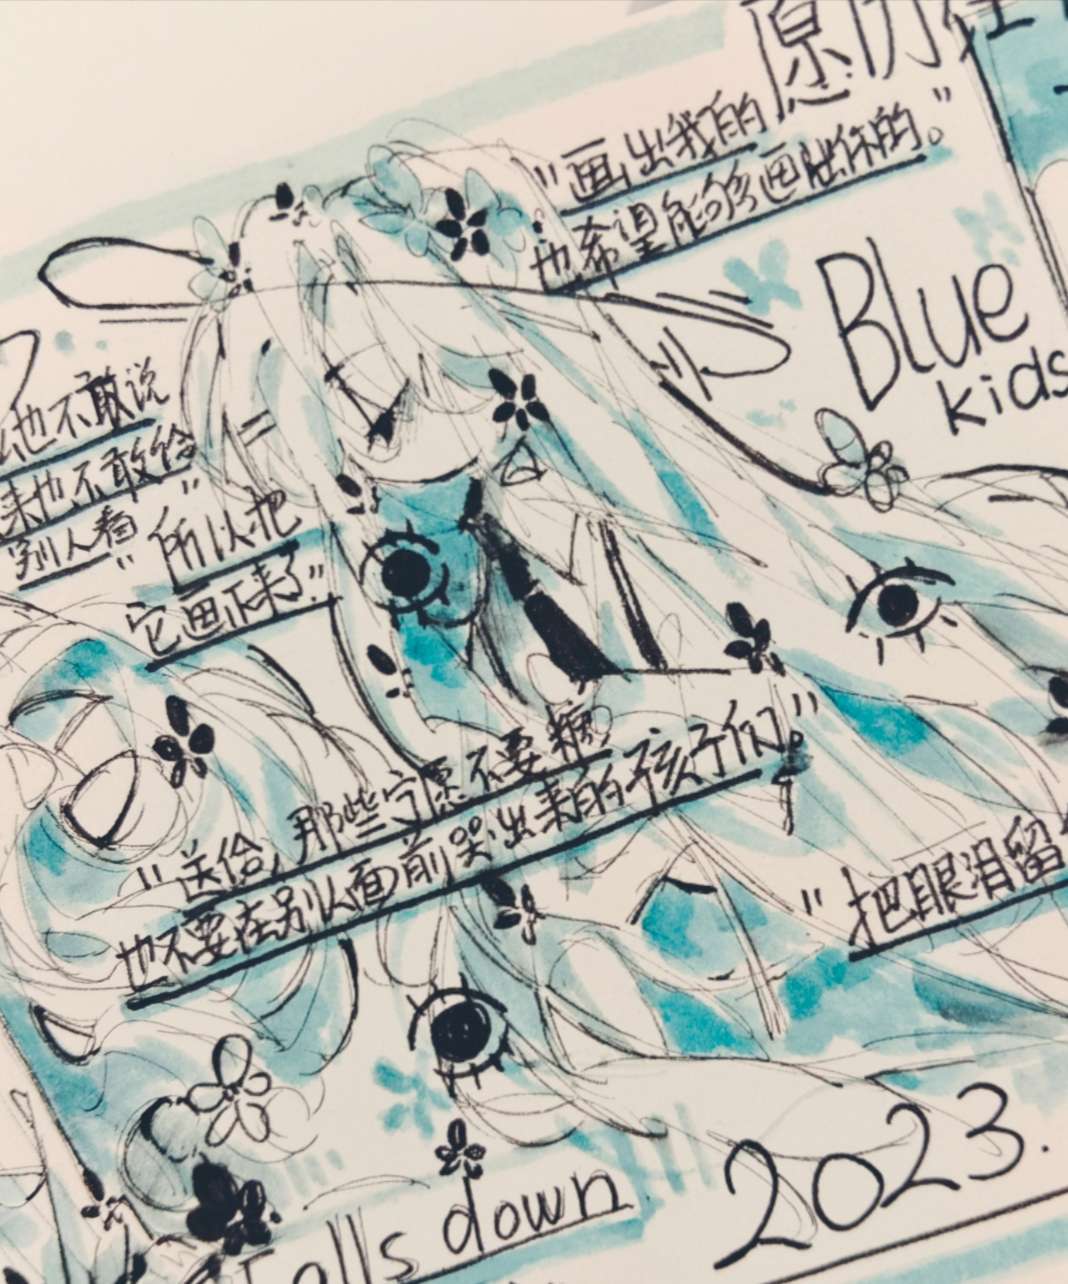 愿历往
"画出我的
也希望能够画出你的。"
Blue
kids
他不敢说
来也不敢给
别人看"
"所以把
它画下来了"
"送给,那些宁愿不要糖
也不要在别人面前哭出来的孩子们。"
"把眼泪留
2023.
falls down